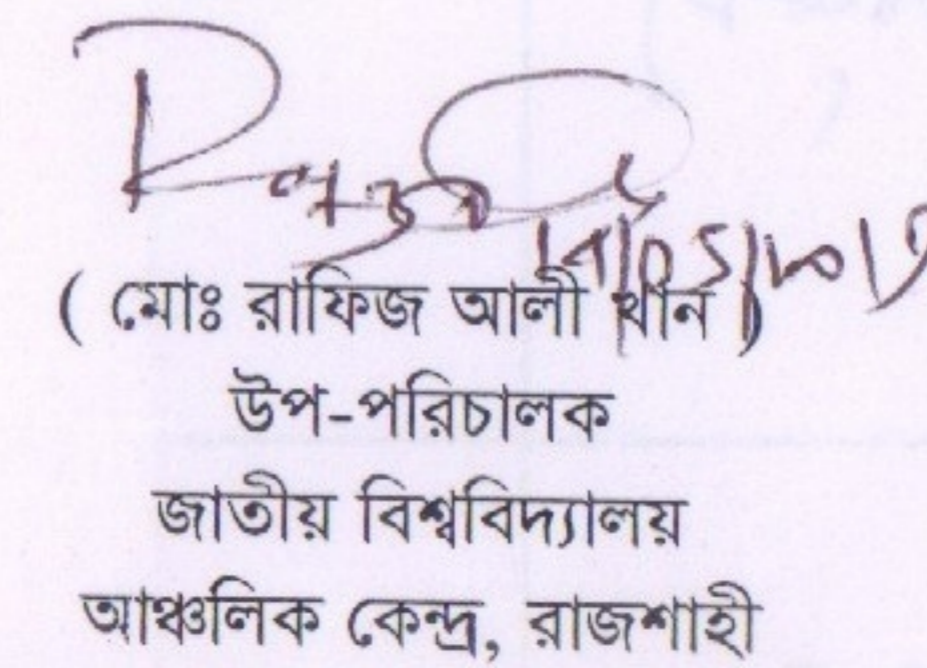 ( মোঃ রাফিজ আলী খান )
উপ-পরিচালক
জাতীয় বিশ্ববিদ্যালয়
আঞ্চলিক কেন্দ্র, রাজশাহী